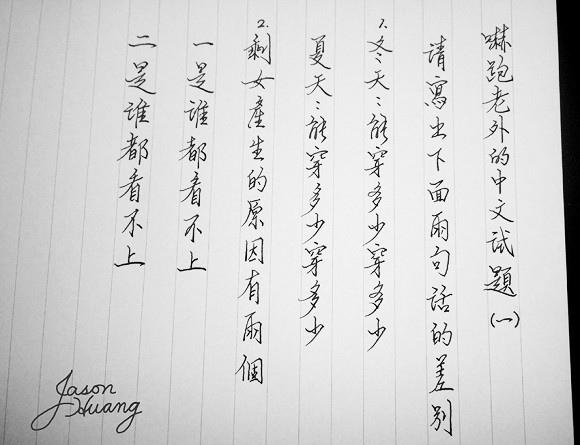 嚇跑老外的中文試題(一)
請寫出下面兩句話的差別
1.冬天：能穿多少穿多少
夏天：能穿多少穿多少
2.剩女產生的原因有兩個
一是誰都看不上
二是誰都看不上
Jason
Huang